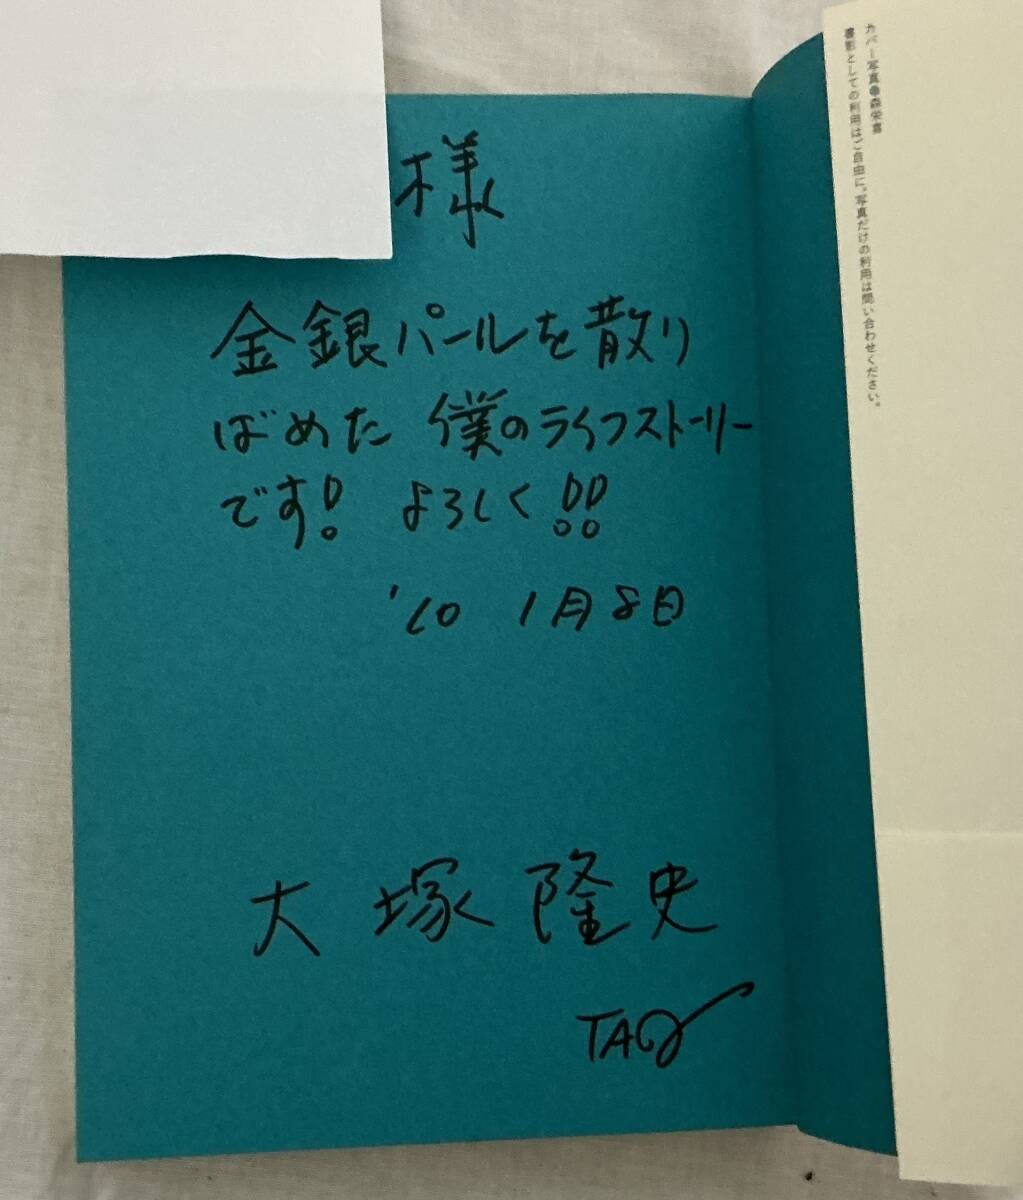 様
金銀パールを散り
ばめた 僕のライフストーリー
です! よろしく!!
'10 1月8日
大塚隆史
TAQ
カバー写真●森栄喜
書影としての利用はご自由に。写真だけの利用は問い合わせください。